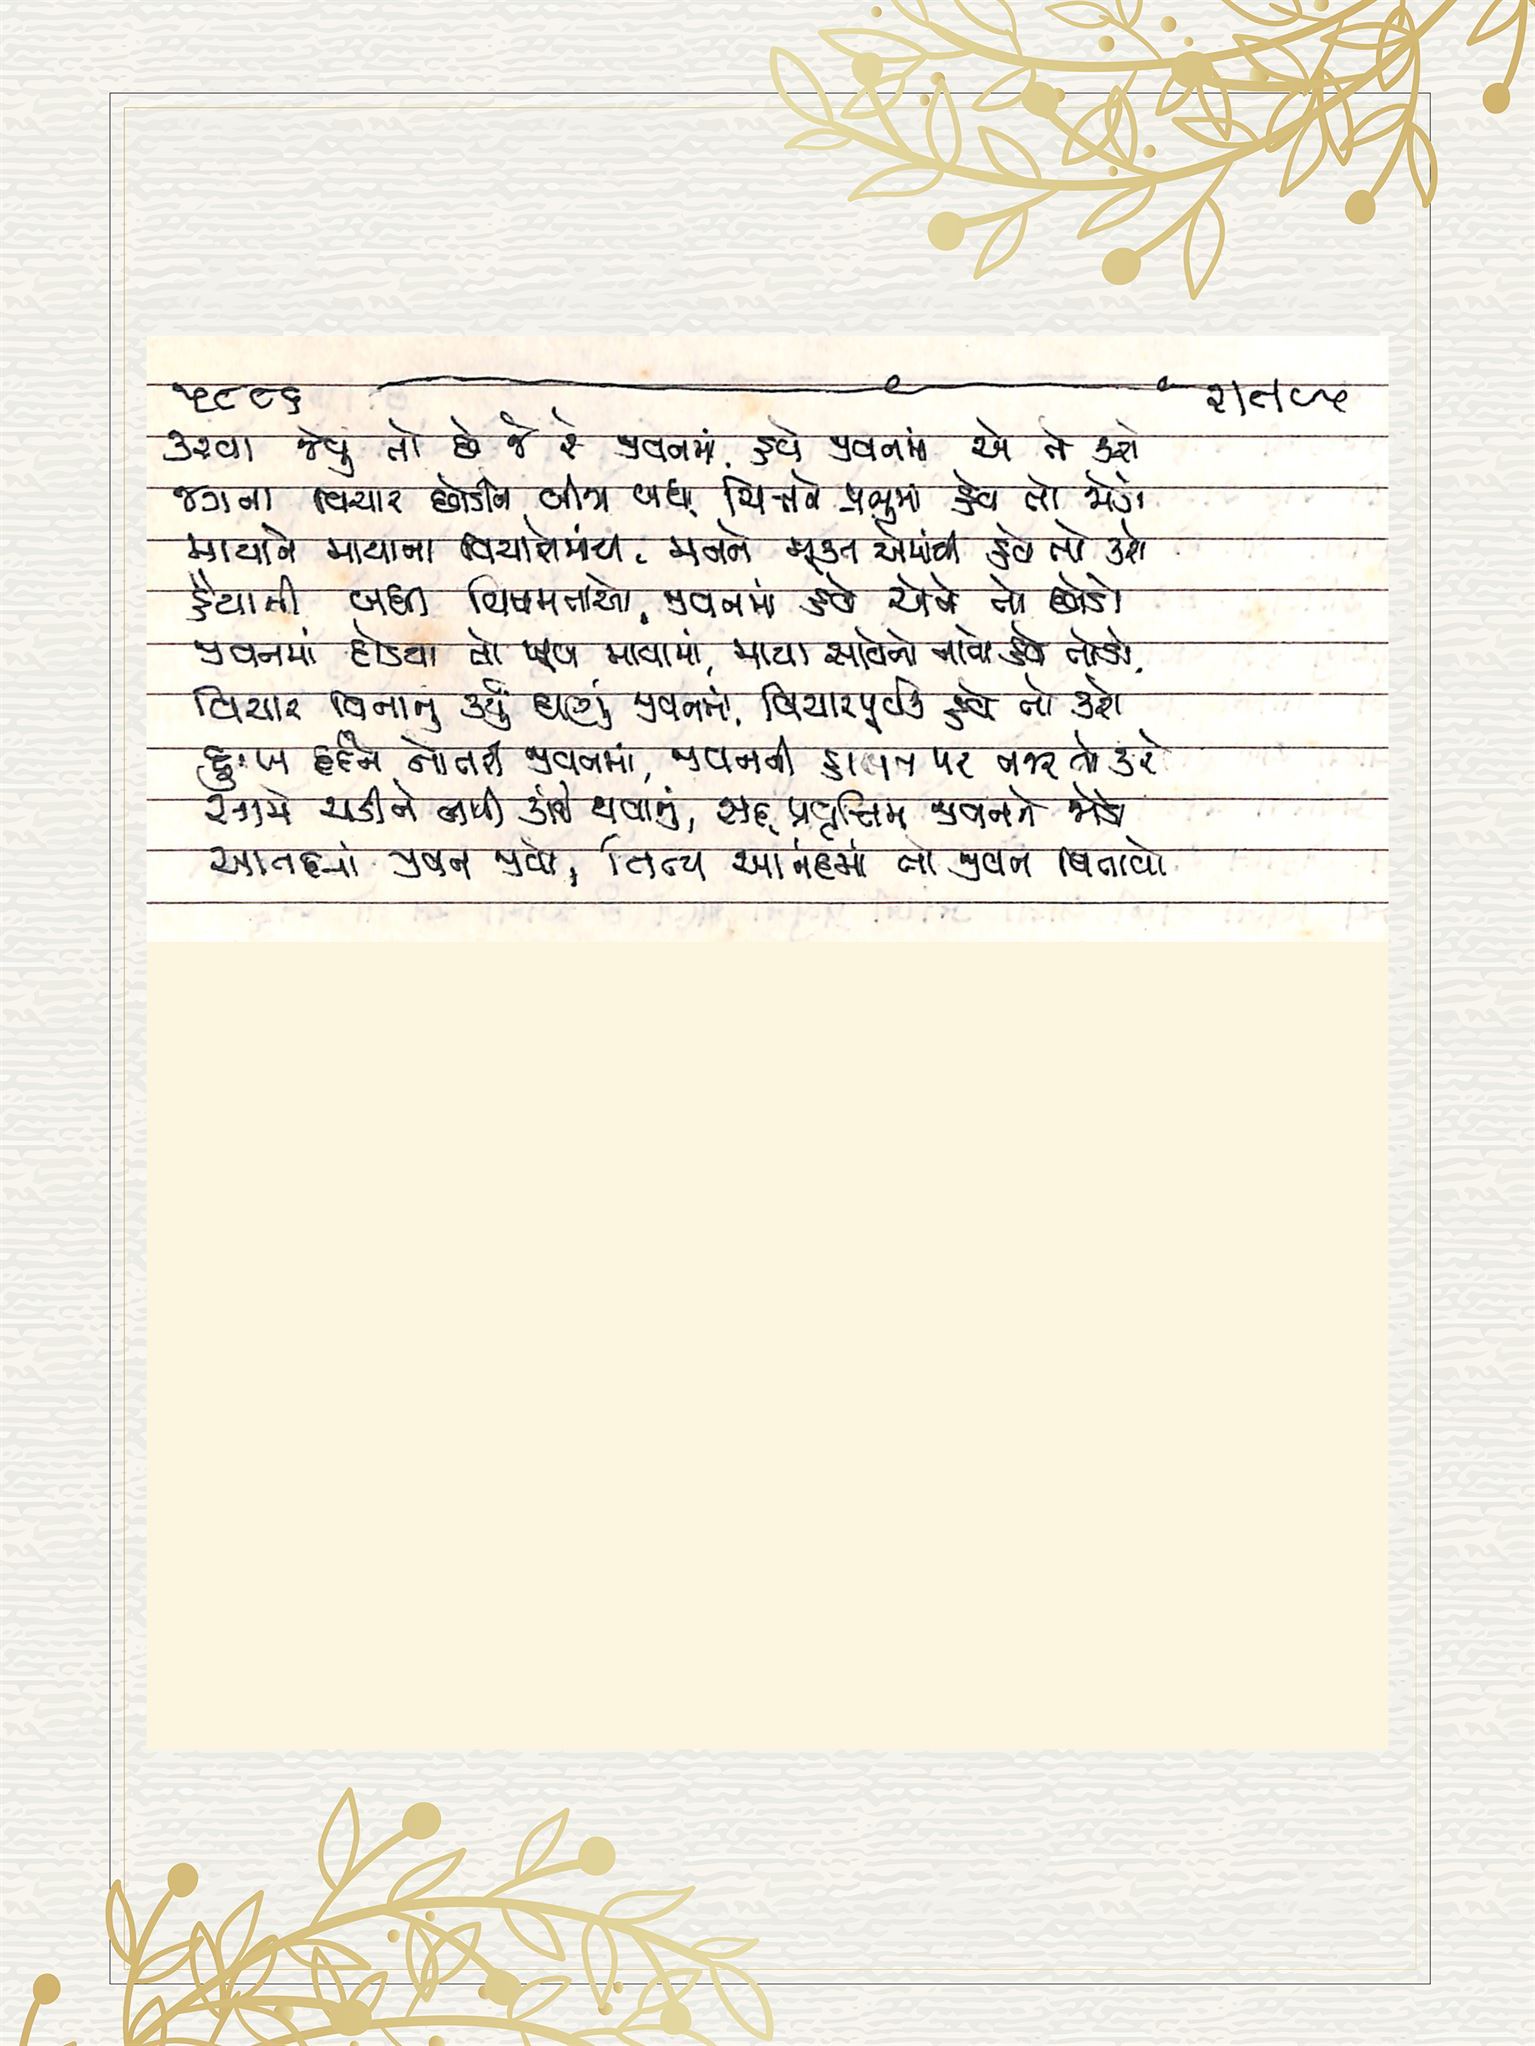 ૫૯૮૬
કરવા જેવું તો છે જે રે જીવનમાં, હવે જીવનમાં એ તો કરો
જગના વિચાર છોડીને બીજા બધા, ચિત્તને પ્રભુમાં હવે તો જોડો
માયાને માયાના વિચારોમાંથી, મનને મુક્ત એમાંથી હવે તો કરો
હૈયાની બધી વિષમતાઓ, જીવનમાં હવે એને તો છોડો
જીવનમાં દોડયા તો ખૂબ માયામાં, માયા સાથેનો નાતો હવે તોડો,
વિચાર વિનાનું કર્યું ઘણું જીવનમાં, વિચારપૂર્વક હવે તો કરો
દુઃખ દર્દને નોતરી જીવનમાં, જીવનની હાલત પર નજર તો કરો
ચડીને નથી કાંઈ થવાનું, સદ્ પ્રવૃત્તિમાં જીવનને જોડો
જીવન જીવો, નિત્ય આનંદમાં તો જીવન વિતાવો